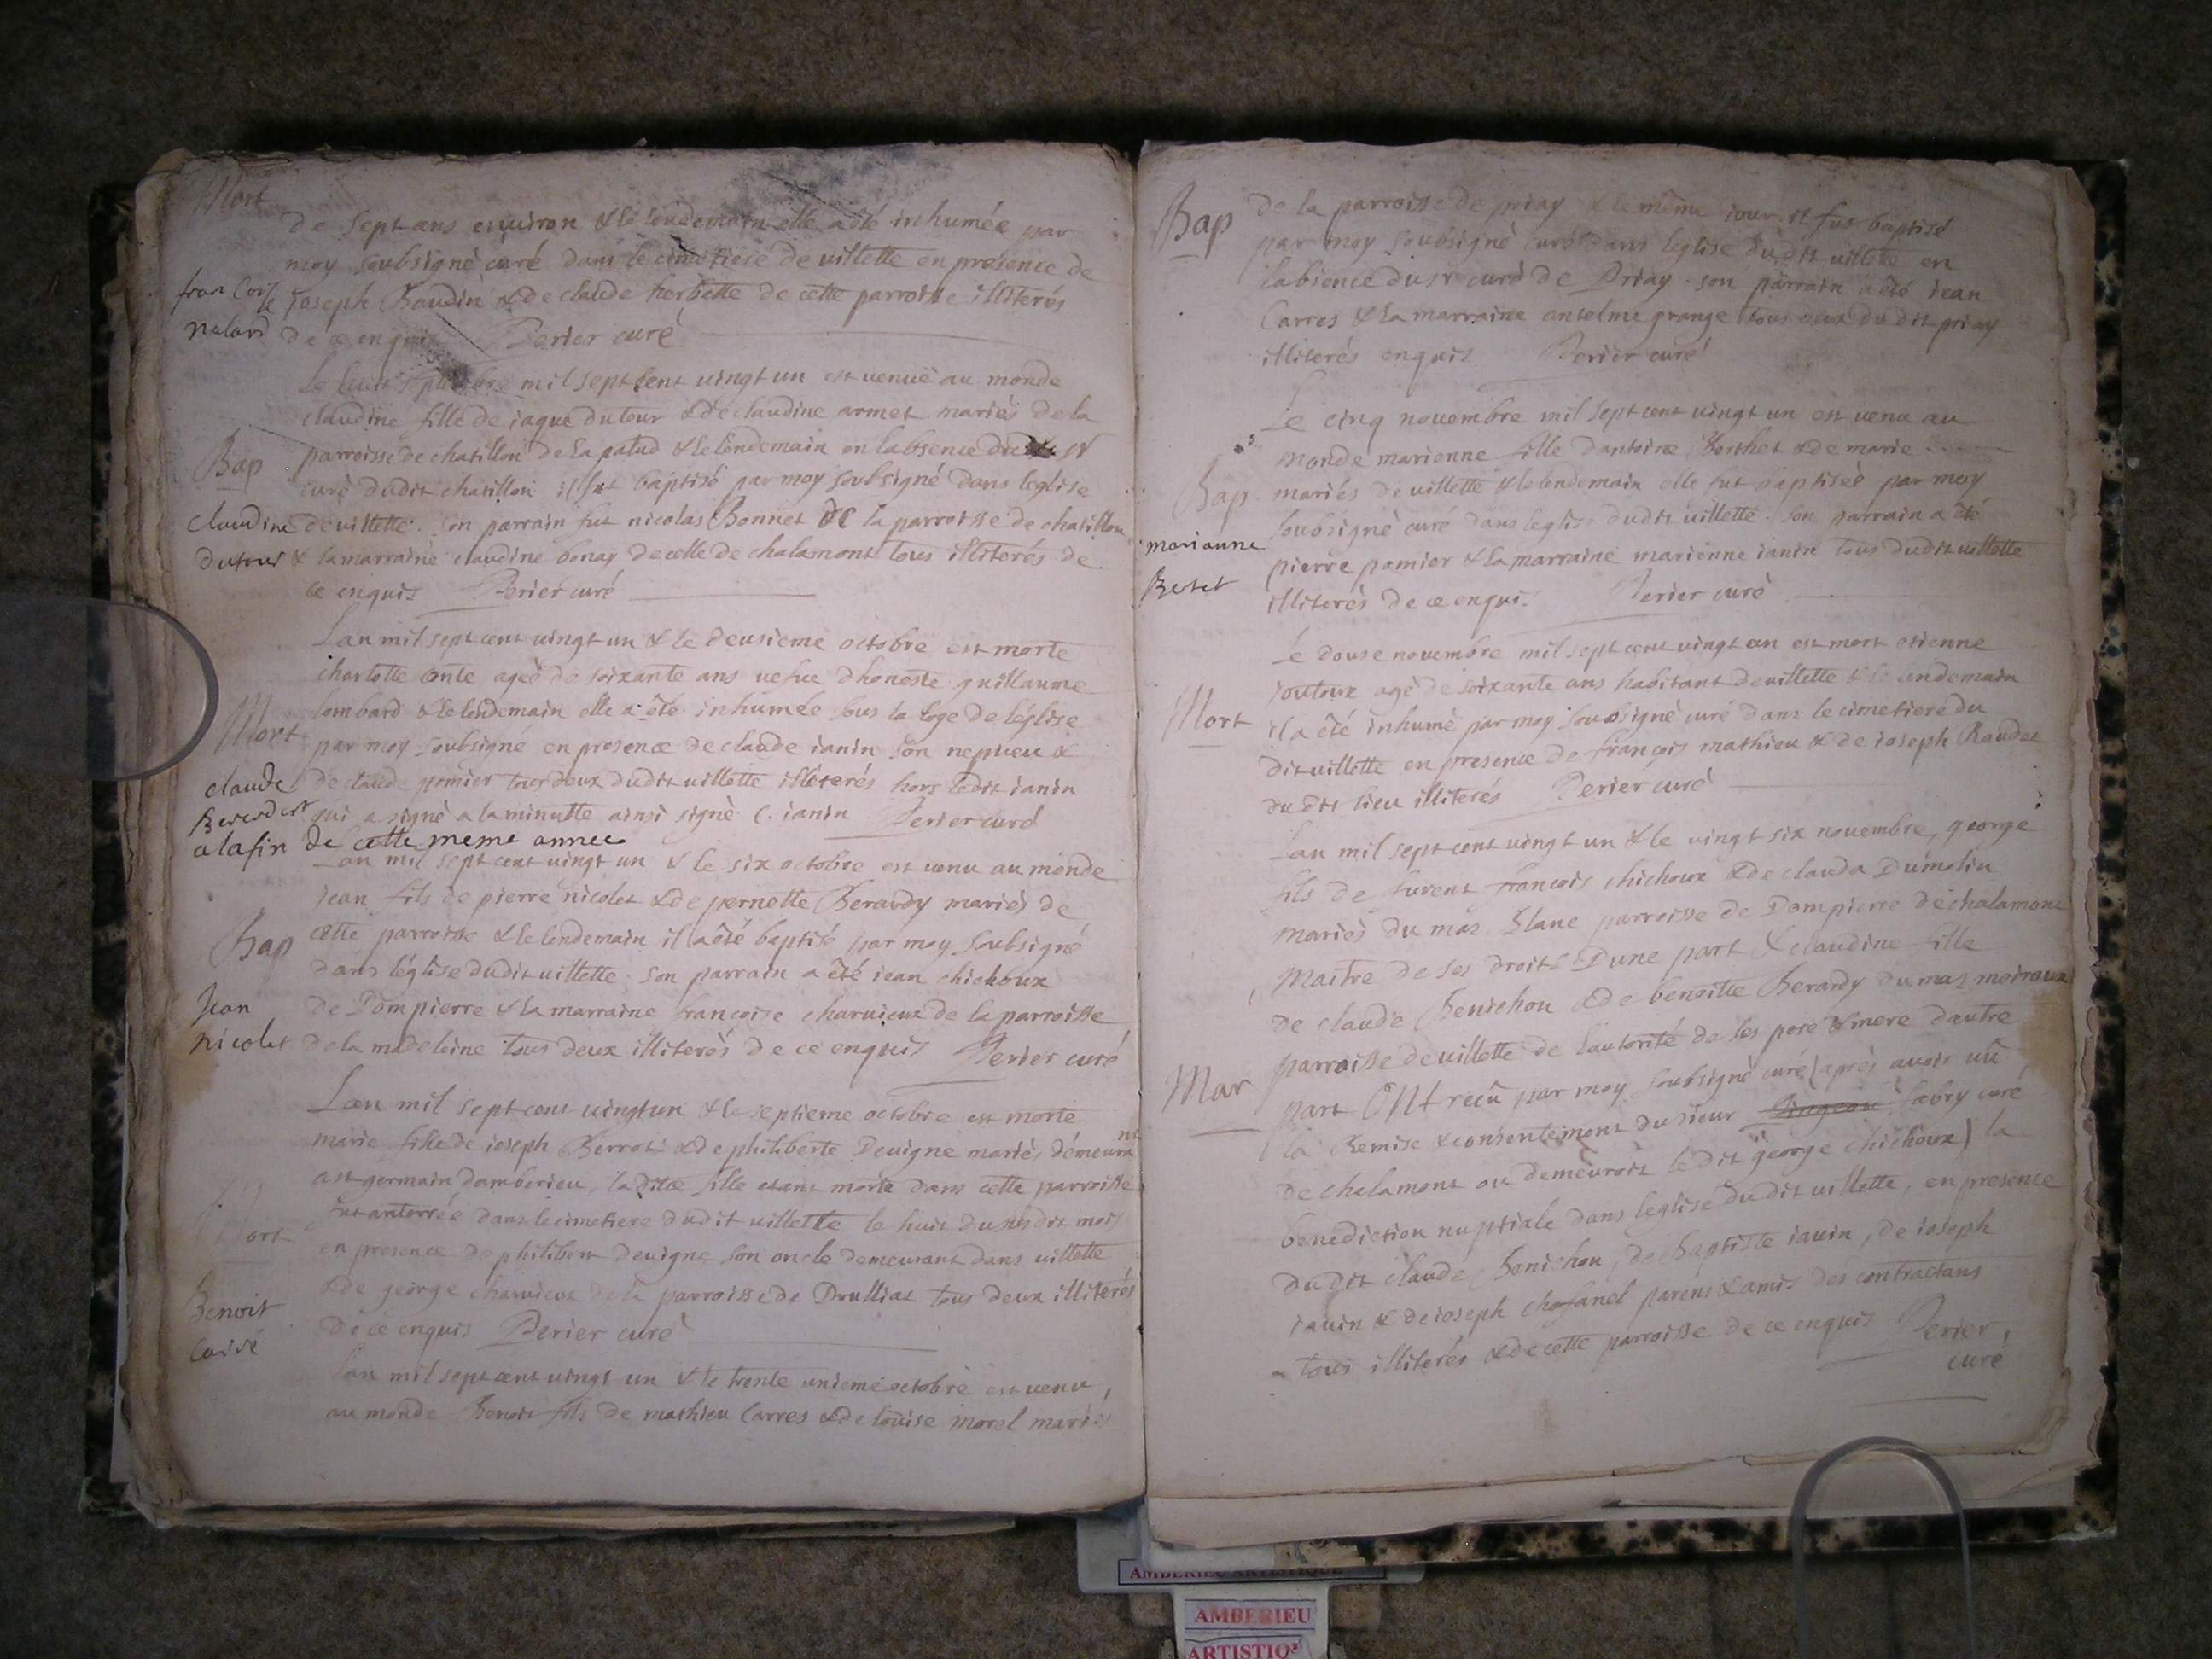 Mort
de sept ans environ & le lendemain elle a été inhumée par
moy soubsigné curé dans le cimetiere de villette en presence de
francois
le
nalard
joseph Baudin & de claude herbette de cette parroisse illiterés
de ce enquis Perier curé
Le huit septembre mil sept cent vingt un est venuë au monde
claudine fille de iaque dutour & de claudine armet mariés de la
Bap
parroisse de chatillon de la palud & le lendemain en labsence du sr
curé dudit chatillon il fut baptisé par moy soubsigné dans leglise
claudine
de villette. son parrain fut nicolas Bonnet de la parroisse de chatillon
dutour
& la marraine claudine bonay de celle de chalamont tous illiterés de
ce enquis Perier curé
Lan mil sept cent vingt un & le deusieme octobre est morte
charlotte onte ageé de soixante ans vefue dhoneste guillaume
lombard & le lendemain elle a été inhumée sous la loge de léglise
Mort
par moy soubsigné en presence de claude ianin son nepueu &
claude
de claude pomier tous deux dudit villette illiterés hors ledit ianin
Bererdet
qui a signé a la minutte ainsi signé C. ianin Perier curé
a la fin de cette meme annee
Lan mil sept cent vingt un & le six octobre est venu au monde
jean fils de pierre nicolet & de pernette Berardy mariés de
Bap
cette parroisse & le lendemain il a été baptisé par moy soubsigné
dans léglise dudit villette. son parrain a été iean chichoux
Jean
de Dompierre & la marraine francoise charvieux de la parroisse
nicolet
de la madeleine tous deux illiterés de ce enquis Perier curé
Lan mil sept cent vingt un & le septieme octobre est morte
marie fille de ioseph Berrot & de philiberte Deuigne mariés démeurant
a st germain damberieu, la dite fille etant morte dans cette parroisse
Mort
fut anterreé dans le cimetiere dudit villette le huit du susdit mois
en presence de philibert deuigne son oncle demeurant dans villette
& de george charvieux de la parroisse de Drullias tous deux illiterés
Benoit
Carré
de ce enquis Perier curé
Lan mil sept cent vingt un & le trente unieme octobre est venu
au monde Benoit fils de mathieu Carres & de louise morel mariés
Bap
de la parroisse de priay & le même iour il fut baptisé
par moy soubsigné curé dans leglise dudit villette en
labsence du sr curé de Priay. son parrain a été iean
Carres & la marraine antelme grange tous deux du dit priay
illiterés enquis Perier curé
Le cinq nouembre mil sept cent vingt un est venu au
monde marienne fille dantoine Berthet & de marie
Bap
mariés de villette & le lendemain elle fut baptiseé par moy
soubsigné curé dans leglise dudit villette. son parrain a été
marianne
pierre pomier & la marraine marienne ianin tous dudit villette
Bertet
illiterés de ce enqui. Perier curé
Le douse nouembre mil sept cent vingt un est mort etienne
joutoux agé de soixante ans habitant de villette & le lendemain
Mort
il a été inhumé par moy soubsigné curé dans le cimetiere du
dit villette en presence de françois mathieu & de ioseph Baudet
du dit lieu illiterés Perier curé
Lan mil sept cent vingt un & le vingt six nouembre, george
fils de furent francois chichoux & de clauda Dumolin
mariés du mas Blanc parroisse de Dompierre de chalamont
maitre de ses droits Dune part & claudine fille
de claude Benichon & de benoitte Berardy du mas moiroux
parroisse de villette de lautorité de ses pere & mere dautre
Mar
part ONt reçû par moy soubsigné curé (après avoir vû
la Remise & consentement du sieur favry curé
de chalamont ou demeuroit le dit george chichoux) la
benediction nuptiale dans leglise dudit villette, en presence
du dit claude Benichon, de baptiste ianin, de ioseph
ianin & de ioseph chafanel parens & amis des contractans
tous illiterés & de cette parroisse de ce enquis Perier
curé
AMBERIEU ARTISTIQUE
AMBERIEU
ARTISTIQ